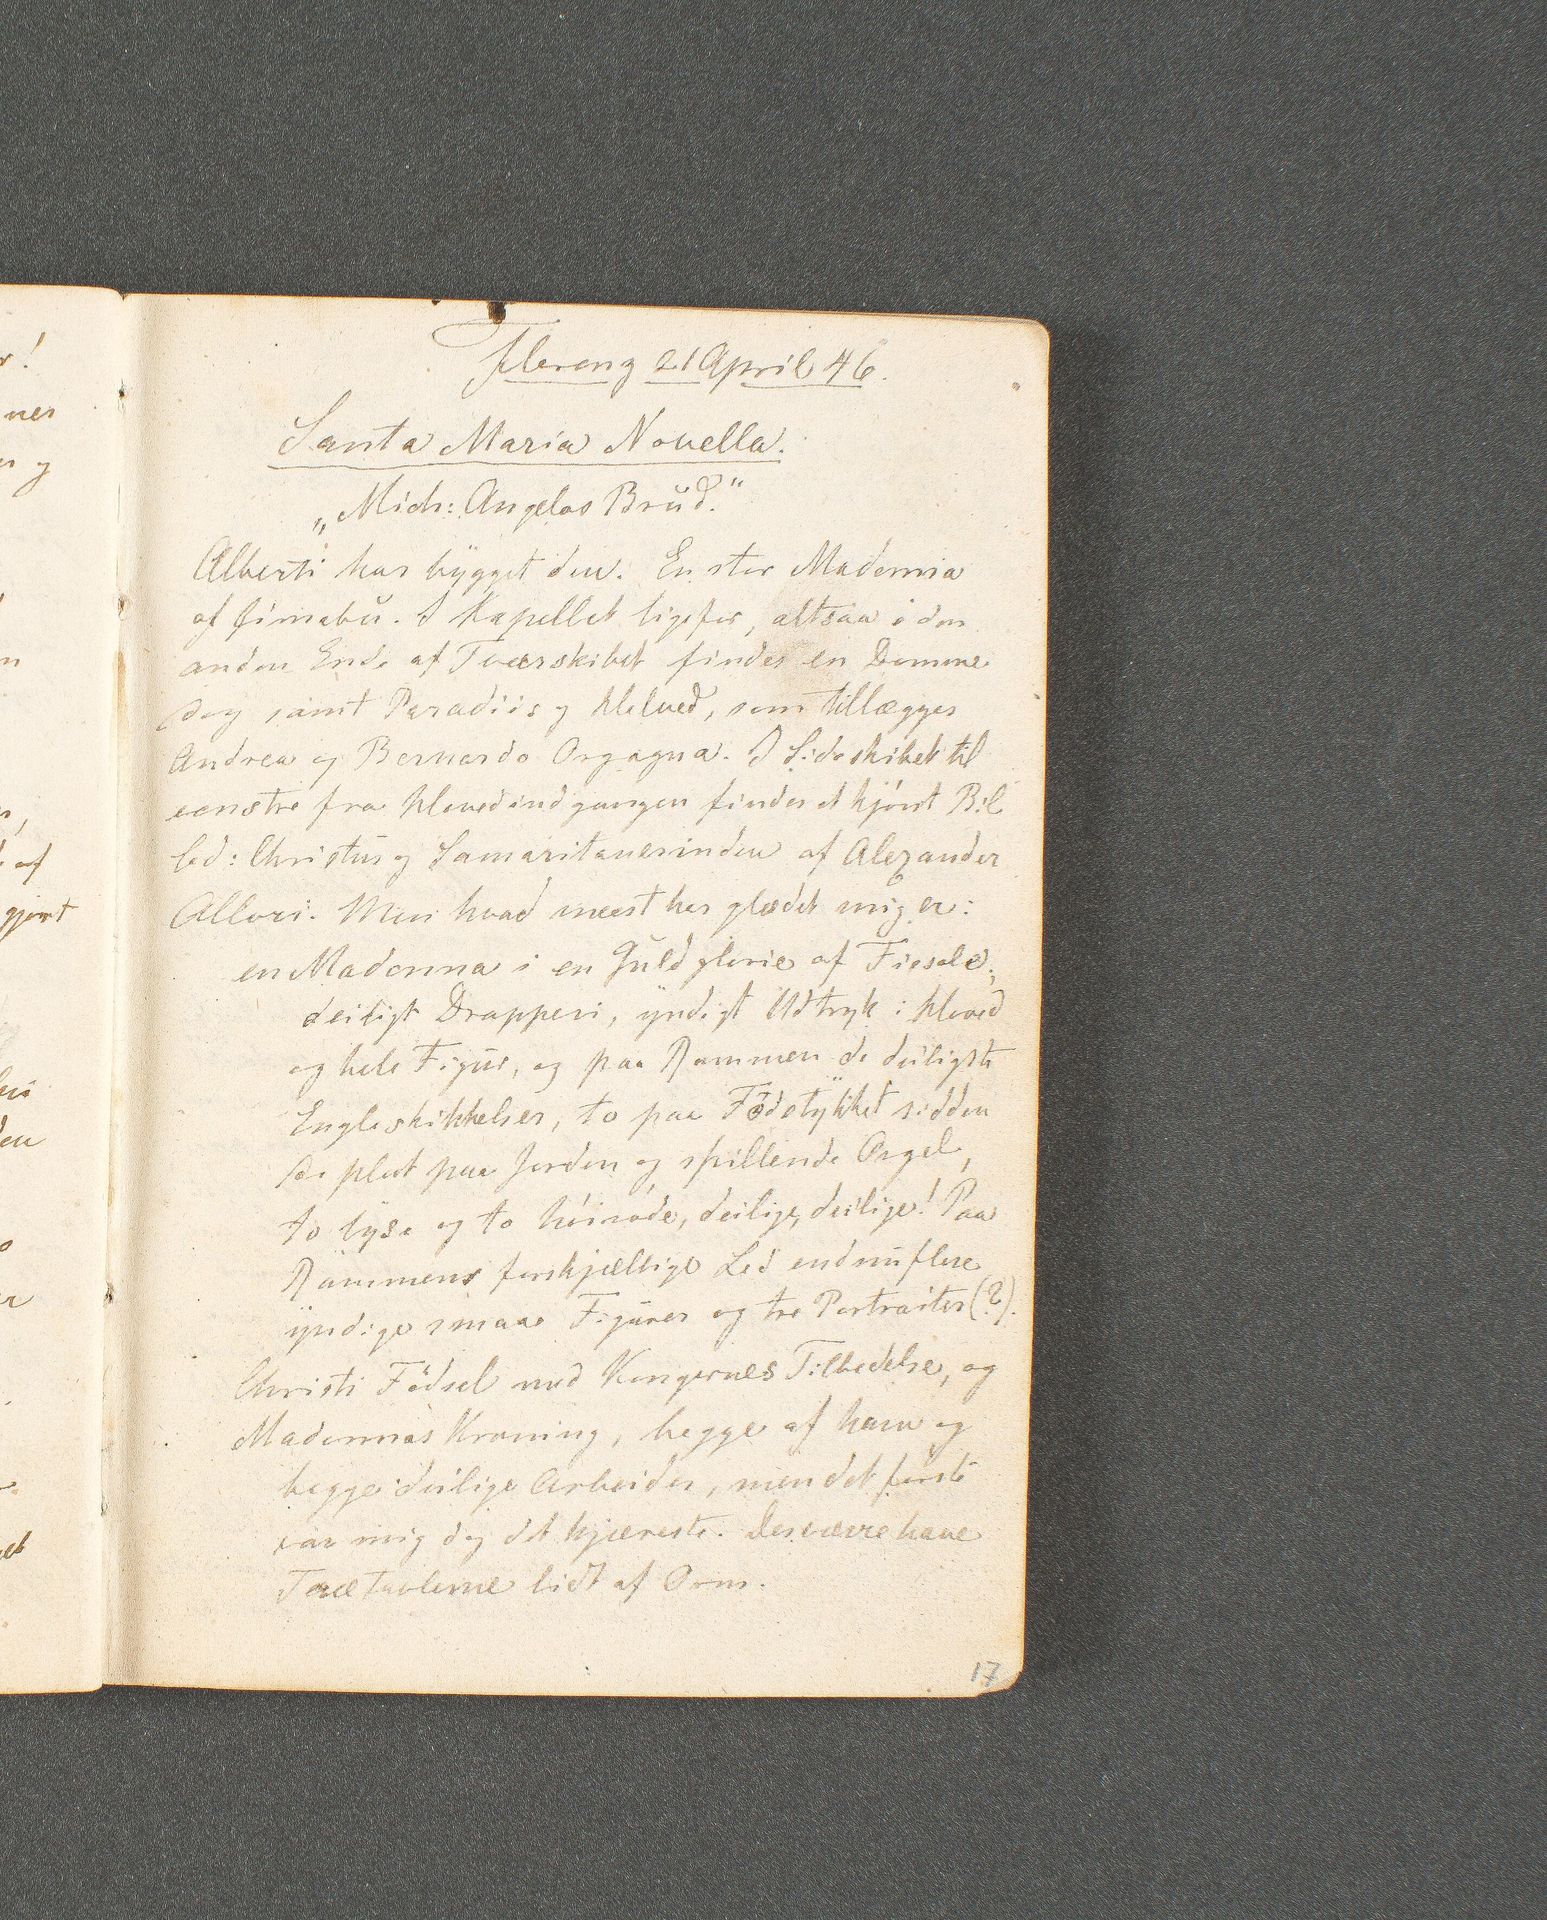 r!
nes
n
af
gjort
den
Florenz 21 April 46.
Santa Maria Novella.
„Mich: Angelos Brud."
Alberti har bygget den. En stor Madonna
af Cimabu. I Kapellet ligefor, altsaa i den
anden Ende af Tverskibet findes en Domme
dag samt Paradiis og Helved, som tillægges
Andrea og Bernardo Orgagna. I Sideskibet til
venstre fra Hovedindgangen findes et kjönt Bil
led: Christus og Samaritanerinden af Alexander
Allori. Men hvad meest har glædet mig er:
en Madonna i en Guldglorie af Fiesole,
deiligt Drapperi, yndigt Udtryk i Hoved
og hele Figur, og paa Rammen de deiligste
Engleskikkelser, to paa Fodstykket sidden
de plat paa Jorden og spillende Orgel,
to lyse og to höiröde, deilige, deilige! Paa
Rammens forskjellige Led endnu flere
yndige smaae Figurer og tre Portraiter (?).
Christi Födsel med Kongernes Tilbedelse, og
Madonnas Kroning, begge af ham og
begge deilige Arbeider, men det förste
var mig dog det kjæreste. Desværre have
Trætavlerne lidt af Orm.
17